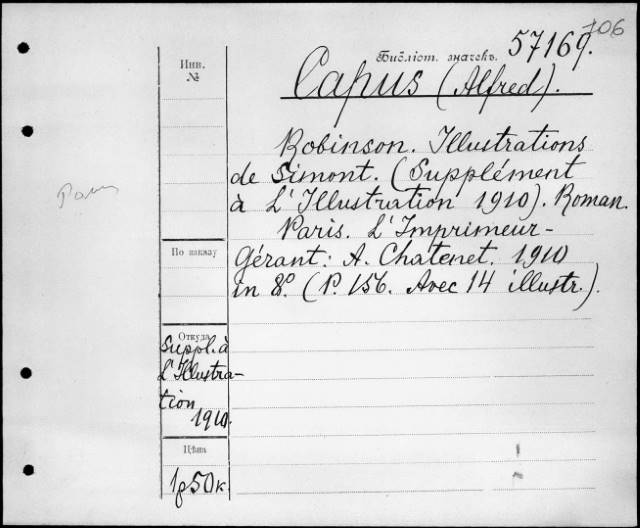 106
Библіот. значекъ. 57169.
Инв.
№
Capus (Alfred).
Robinson. Illustrations
de Simont. (Supplément
à L'Illustration 1910). Roman.
Paris. L'Imprimeur-
Gérant: A. Chatenet. 1910
in 8º. (P. 156. Avec 14 illustr.).
По какому
Откуда
Suppl. à
L'Illustra-
tion
1910.
Цѣна
1р 50к